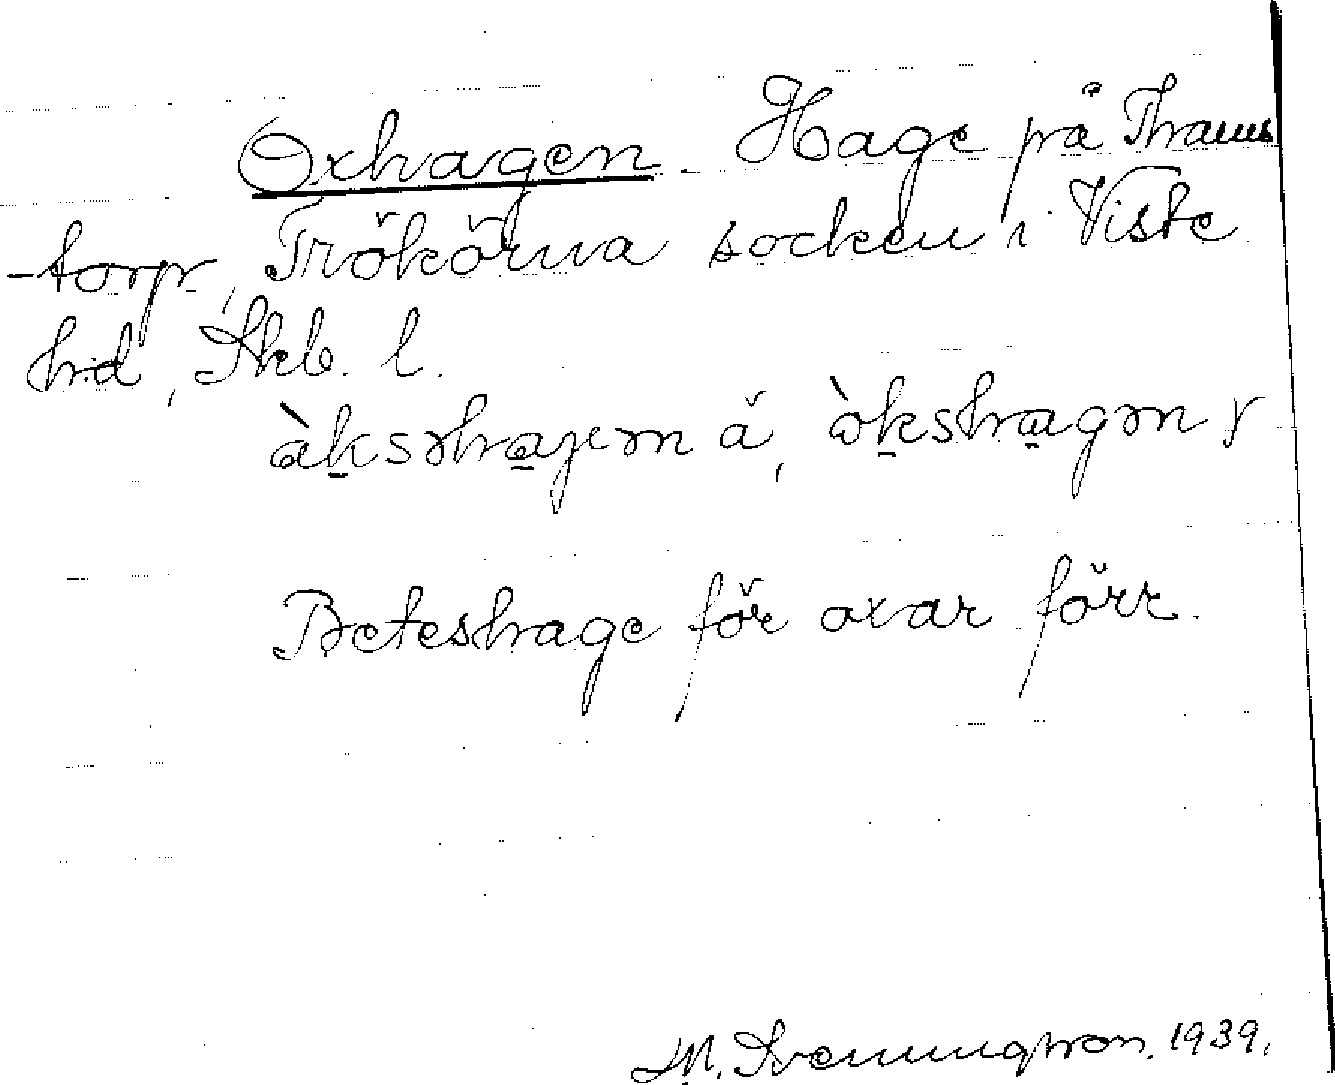 Oxhagen. Hage på Thams
-torp, Trökörna socken i Viste
hd, Skb. l.
àksəhaɡen ä, òkshagən y
Beteshage för oxar förr.
M. Svenungson. 1939.